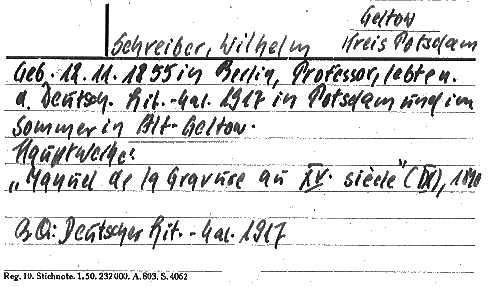 Geltow
Schreiber, Wilhelm Kreis Potsdam
Geb. 12. 11. 1855 in Berlin, Professor, lebt n.
d. Deutsch. Lit.-Kal. 1917 in Potsdam und im
Sommer in Alt-Geltow.
Hauptwerke:
"Manuel de la Gravure au XV. siècle" (IX),
B Q: Deutscher Lit.-Kal. 1917
Reg. 10. Stichnote. 1. 50. 232000. A. 803. S. 4062